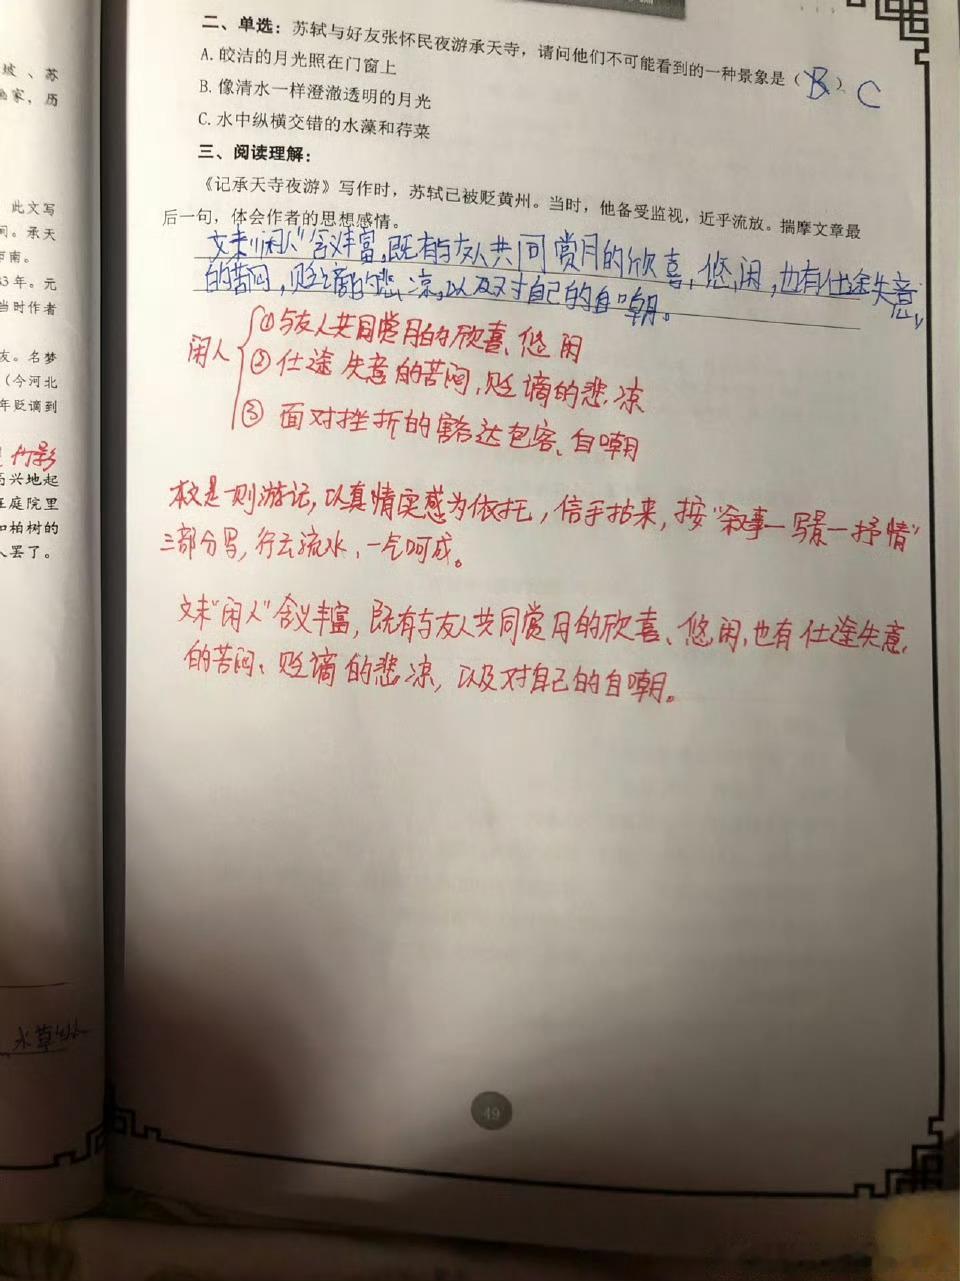 二、单选：苏轼与好友张怀民夜游承天寺，请问他们不可能看到的一种景象是（B）C
A.皎洁的月光照在门窗上
B.像清水一样澄澈透明的月光
C.水中纵横交错的水藻和荇菜
三、阅读理解：
《记承天寺夜游》写作时，苏轼已被贬黄州。当时，他备受监视，近乎流放。揣摩文章最
后一句，体会作者的思想感情。
文末“闲人”含义丰富，既有与友人共同赏月的欣喜，悠闲，也有仕途失意
的苦闷，贬谪的悲凉，以及对自己的自嘲。
闲人
①与友人共同赏月的欣喜、悠闲
②仕途失意的苦闷，贬谪的悲凉
③面对挫折的豁达包容、自嘲
本文是一则游记，以真情实感为依托，信手拈来，按“叙事—写景—抒情”
三部分写，行云流水，一气呵成。
文末“闲人”含义丰富，既有与友人共同赏月的欣喜、悠闲，也有仕途失意
的苦闷、贬谪的悲凉，以及对自己的自嘲。
49
坡、苏
画家，历
此文写
间。承天
市南。
83年。元
当时作者
友。名梦
（今河北
年贬谪到
竹影
高兴地起
在庭院里
和柏树的
人罢了。
水草